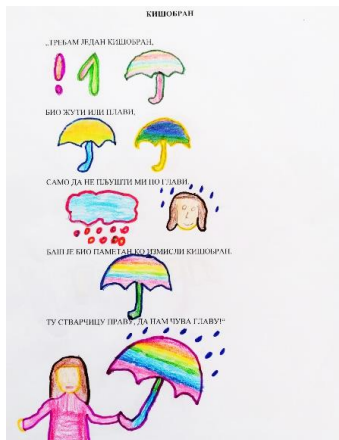 КИШОБРАН
„ТРЕБАМ ЈЕДАН КИШОБРАН,
! 1
БИО ЖУТИ ИЛИ ПЛАВИ,
САМО ДА НЕ ПЉУШТИ МИ ПО ГЛАВИ.
БАШ ЈЕ БИО ПАМЕТАН КО ИЗМИСЛИ КИШОБРАН.
ТУ СТВАРЧИЦУ ПРАВУ, ДА НАМ ЧУВА ГЛАВУ!“